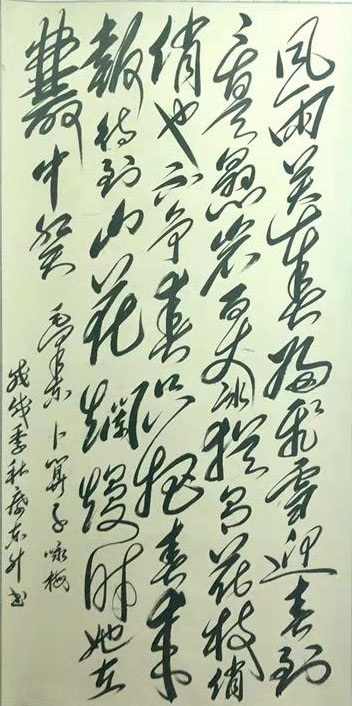 风雨送春归飞雪迎春到
已是悬崖百丈冰犹有花枝俏
俏也不争春只把春来
报待到山花烂熳时她在
丛中笑 毛泽东卜算子咏梅
戊戌季秋 东升书